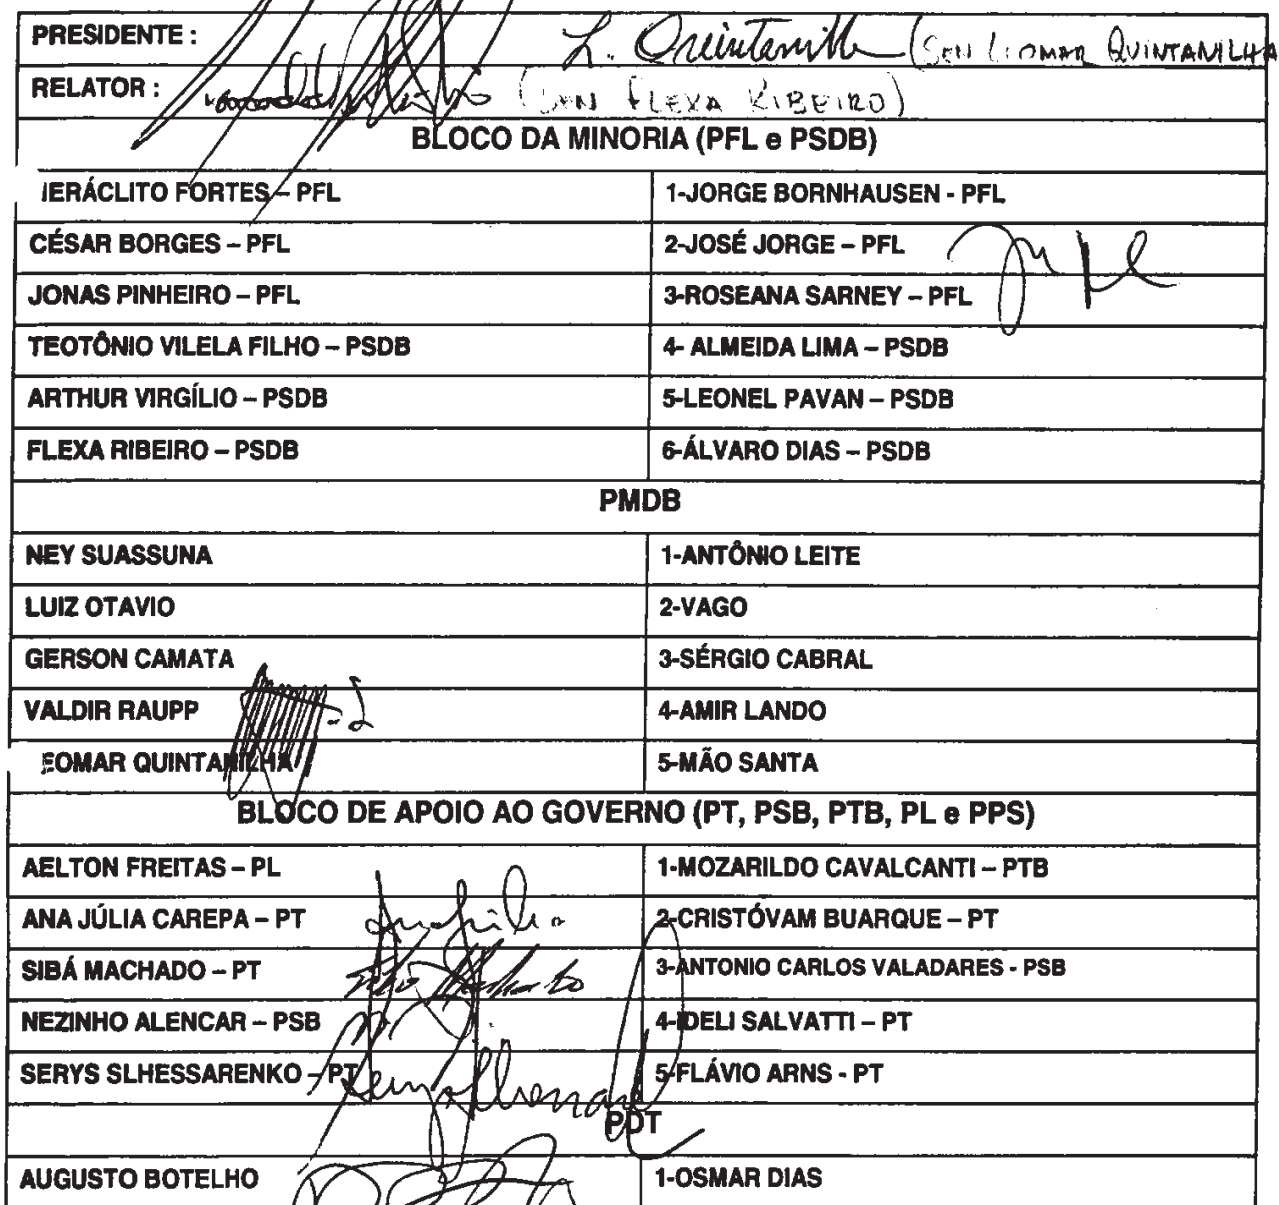 PRESIDENTE : L. Quintanilha (SEN LEOMAR QUINTANILHA
RELATOR : (SEN FLEXA RIBEIRO)
BLOCO DA MINORIA (PFL e PSDB)
IERÁCLITO FORTES – PFL 1-JORGE BORNHAUSEN - PFL
CÉSAR BORGES – PFL 2-JOSÉ JORGE – PFL
JONAS PINHEIRO – PFL 3-ROSEANA SARNEY – PFL
TEOTÔNIO VILELA FILHO – PSDB 4- ALMEIDA LIMA – PSDB
ARTHUR VIRGÍLIO – PSDB 5-LEONEL PAVAN – PSDB
FLEXA RIBEIRO – PSDB 6-ÁLVARO DIAS – PSDB
PMDB
NEY SUASSUNA 1-ANTÔNIO LEITE
LUIZ OTAVIO 2-VAGO
GERSON CAMATA 3-SÉRGIO CABRAL
VALDIR RAUPP 4-AMIR LANDO
EOMAR QUINTANILHA 5-MÃO SANTA
BLOCO DE APOIO AO GOVERNO (PT, PSB, PTB, PL e PPS)
AELTON FREITAS – PL 1-MOZARILDO CAVALCANTI – PTB
ANA JÚLIA CAREPA – PT 2-CRISTÓVAM BUARQUE – PT
SIBÁ MACHADO – PT 3-ANTONIO CARLOS VALADARES - PSB
NEZINHO ALENCAR – PSB 4-IDELI SALVATTI – PT
SERYS SLHESSARENKO – PT 5-FLÁVIO ARNS - PT
PDT
AUGUSTO BOTELHO 1-OSMAR DIAS